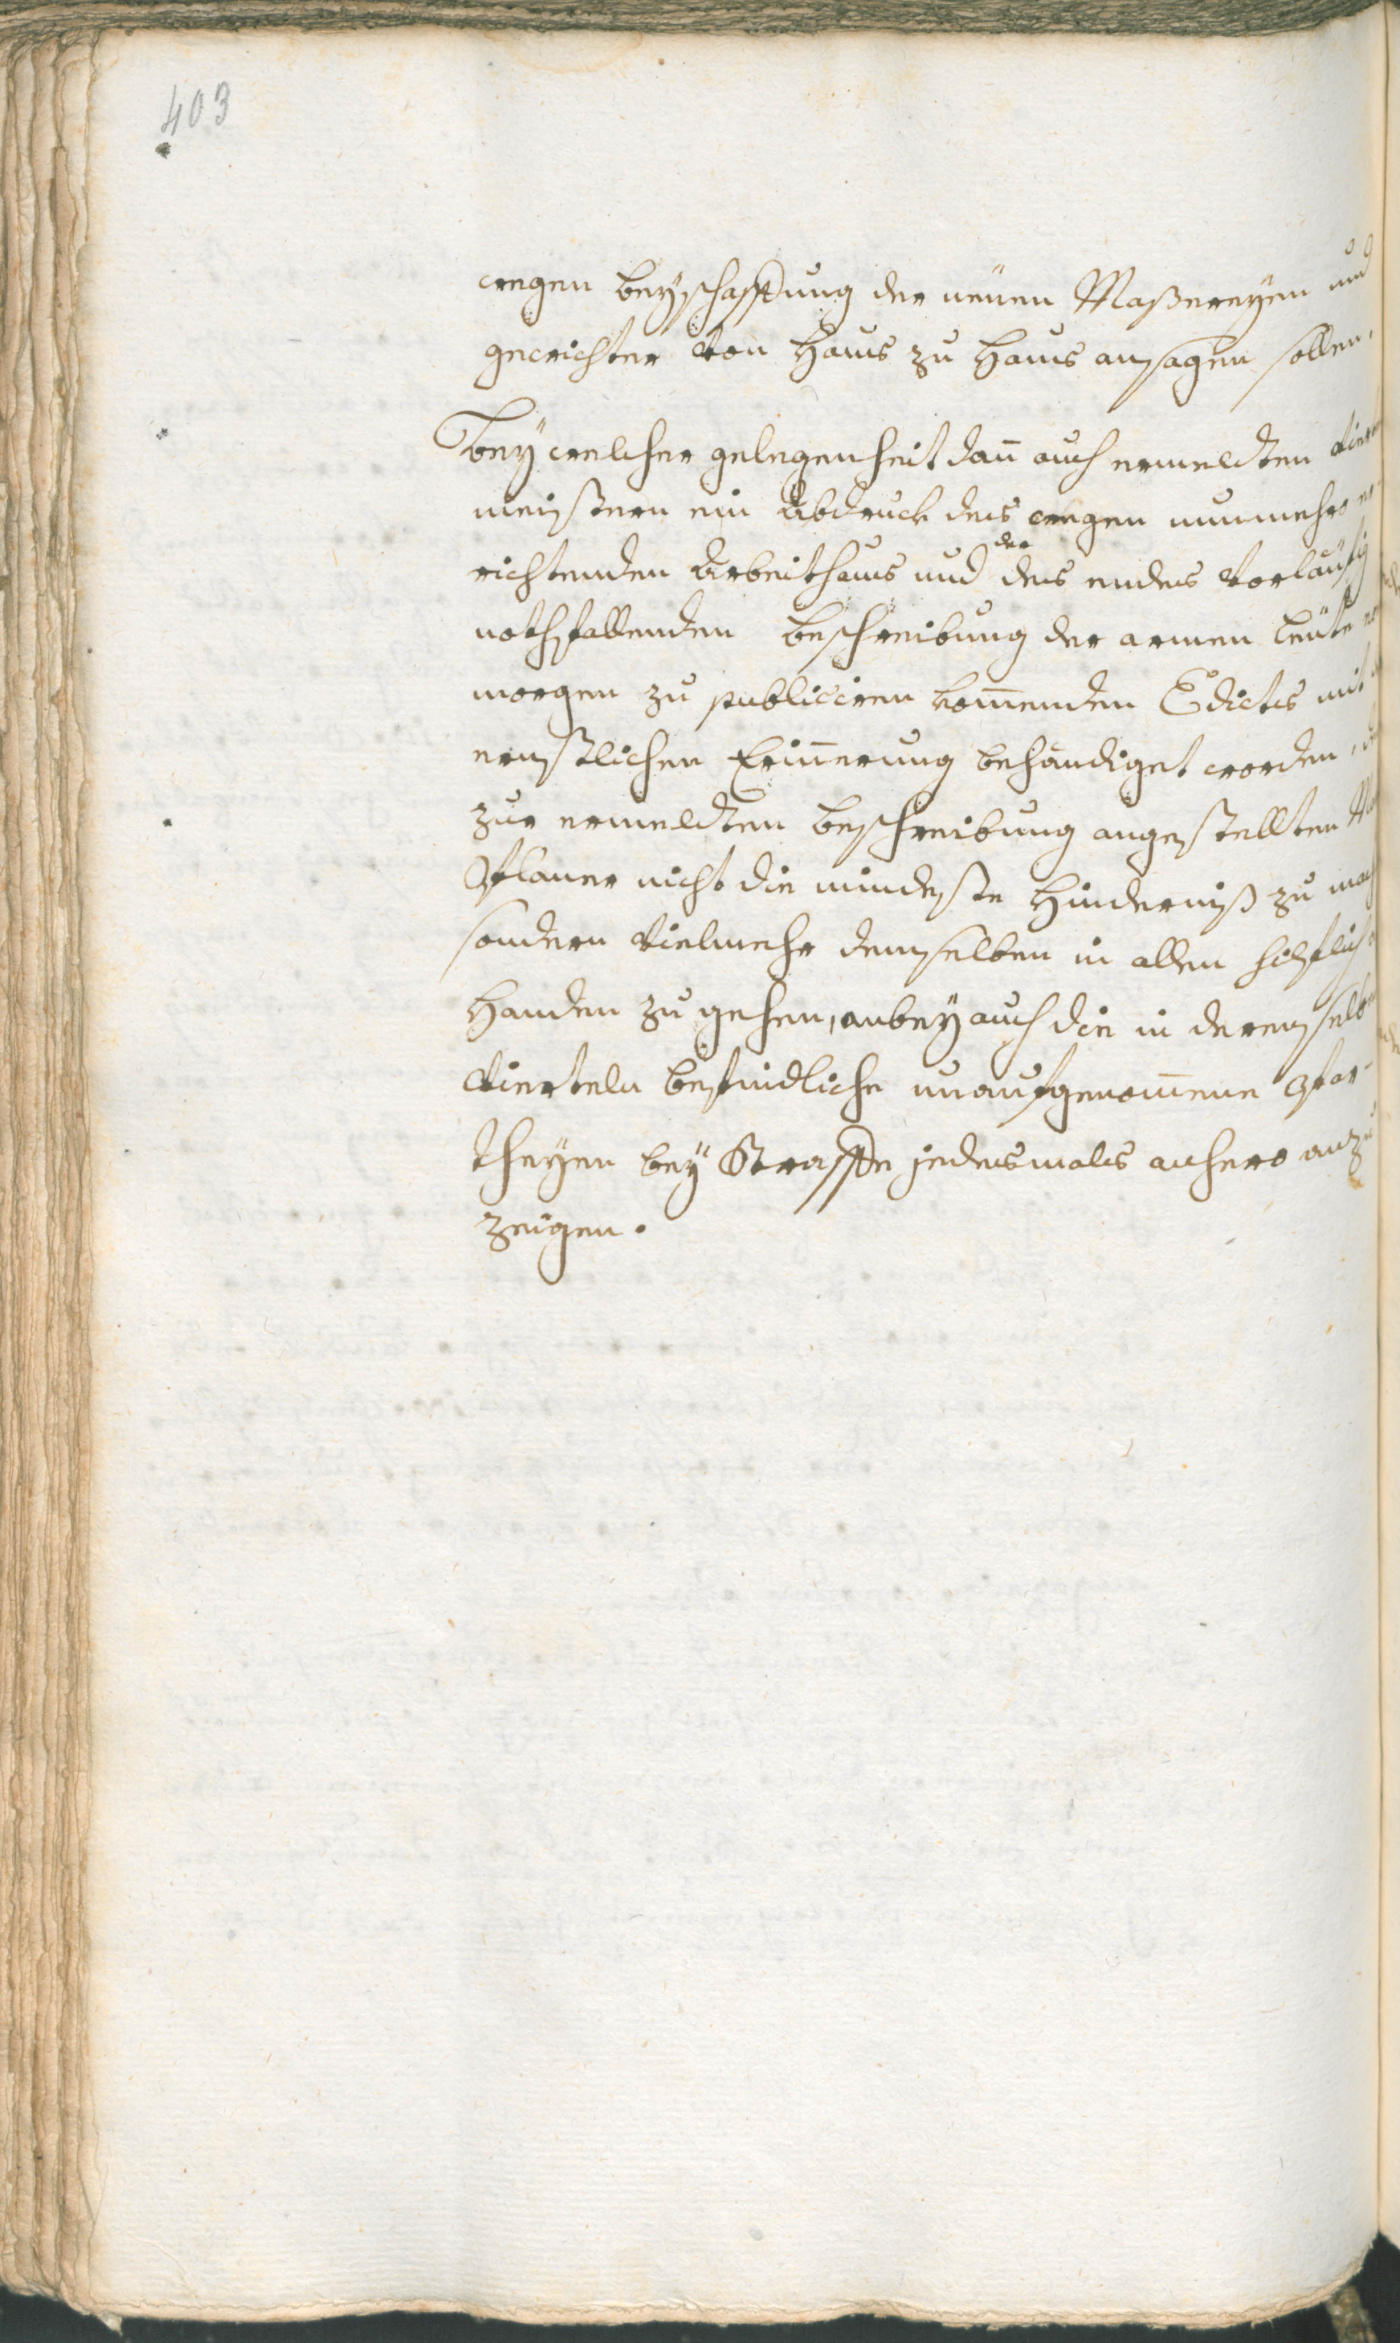 403
wegen beyschaffung der neuen Maßereyen und
gewichter von Haus zu Haus ansagen sollen.
Bey welcher gelegenheit dan̄ auch ermeldten
meisteren ein Abdruck des wegen nunmehro er-
richtenden Arbeithaus und
der
des endes vorlaüfig
nothfallenden beschreibung der armen leüte
morgen zu publiciren kom̄enden Edictis mit
ernstlicher Erin̄erung behändiget worden,
zur ermeldten beschreibung angestellten
nicht die mindeste Hinderniß zu
sondern vielmehr demselben in allen hilflich
Handen zu gehen, anbey auch die in derenselben
vierteln befindliche unaufgenom̄ene Par-
theyen bey Straffe jedesmals anhero anzu
zeigen.